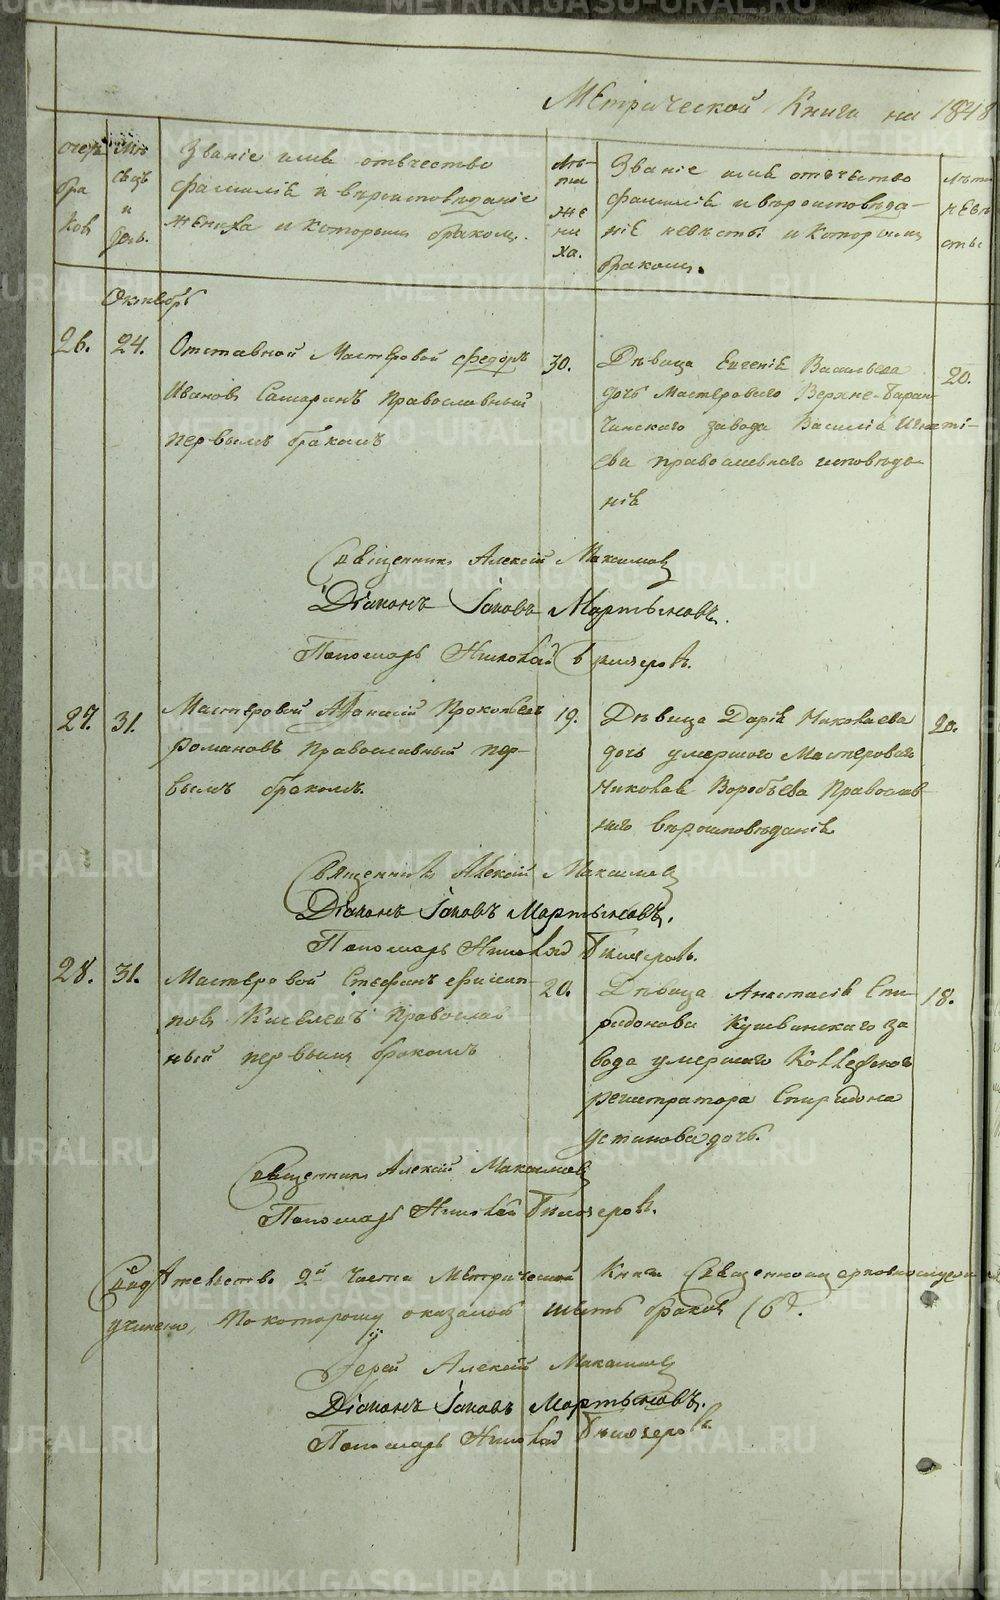 Метрической Книги на 1848
очеръ бра ковъ
Мѣ сяцъ и день.
Званіе имя отечество
фамилія и вѣроисповѣданіе
жениха и которымъ бракомъ.
Лѣта же ни ха.
Званіе имя отечество
фамилія и вѣроисповѣда-
ніе невѣсты и которымъ
бракомъ.
Лѣта невѣ сты
Октябрь
26. 24. Отставной Мастеровой Федоръ
Ивановъ Самаринъ Православный
первымъ бракомъ
30.
Дѣвица Евгенія Васильева
дочь Мастероваго Верхне-Баран-
чинскаго завода Василія Игнаті-
ева православнаго исповѣда-
нія
20.
Священникъ Алексій Максимовъ
Діаконъ Іаковъ Мартыновъ.
Пономарь Николай
27. 31. Мастеровой Афонасій Прокопьевъ
Романовъ Православный пер-
вымъ бракомъ.
19.
Дѣвица Дарія Николаева
дочь умершаго Мастероваго
Николая Воробьева Православ-
наго вѣроисповѣданія
20.
Священникъ Алексій Максимовъ
Діаконъ Іаковъ Мартыновъ.
Пономарь Николай
28. 31. Мастеровой Стефанъ Филип-
повъ Киселевъ Православ
ный первымъ бракомъ
20.
Дѣвица Анастасія Спи-
ридонова Кушвинскаго за
вода умершаго Коллежск
регистратора Спиридона
Устинова дочь.
18.
Священникъ Алексій Максимовъ
Пономарь Николай
2й части Метрической Книги Священноцерковнослужит
учинено, по которому оказалось шесть браковъ (6).
Іерей Алексій Максимовъ
Діаконъ Іаковъ Мартыновъ.
Пономарь Николай
METRIKI.GASO-URAL.RU